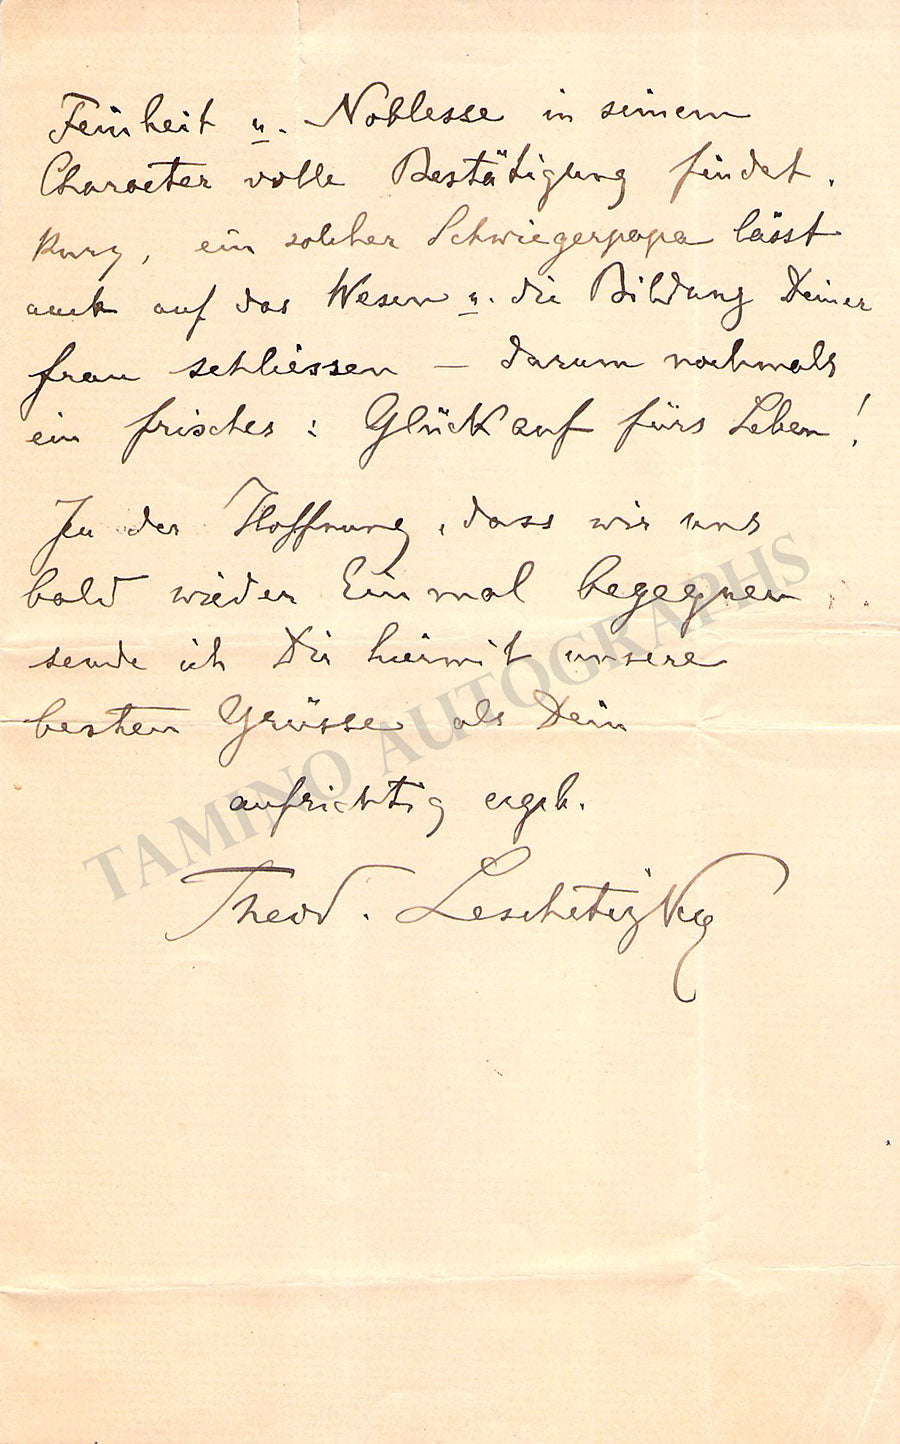 Feinheit u. Noblesse in seinem
Character volle Bestätigung findet.
Kurz, ein solcher Schwiegerpapa lässt
auch auf das Wesen u. die Bildung Deiner
Frau schliessen – darum nochmals
ein frisches: Glück auf fürs Leben!
In der Hoffnung, dass wir uns
bald wieder Einmal begegnen
sende ich Dir hiermit unsere
besten Grüsse als Dein
aufrichtig ergb.
Theod. Leschetizky
TAMINO AUTOGRAPHS